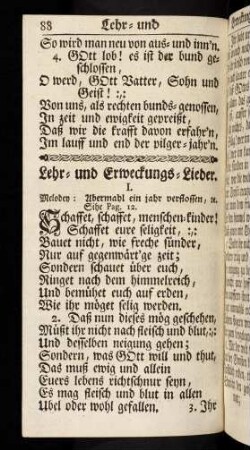 88 Lehr- und
So wird man neu von aus- und inn'n.
4. GOtt lob! es ist der bund ge-
schlossen,
O werd, GOtt Vatter, Sohn und
Geist! :,:
Von uns, als rechten bunds-genossen,
In zeit und ewigkeit gepreißt,
Daß wir die krafft davon erfahr'n,
Im lauff und end der pilger-jahr'n.
Lehr- und Erweckungs-Lieder.
I.
Melodey: Abermahl ein jahr verflossen, ꝛc.
Sihe Pag. 12.
Schaffet, schaffet, menschen-kinder!
Schaffet eure seligkeit, :,:
Bauet nicht, wie freche sünder,
Nur auf gegenwärt'ge zeit;
Sondern schauet über euch,
Ringet nach dem himmelreich,
Und bemühet euch auf erden,
Wie ihr möget selig werden.
2. Daß nun dieses mög geschehen,
Müßt ihr nicht nach fleisch und blut,:,:
Und desselben neigung gehen;
Sondern, was GOtt will und thut,
Das muß ewig und allein
Euers lebens richtschnur seyn,
Es mag fleisch und blut in allen
Ubel oder wohl gefallen. 3. Ihr